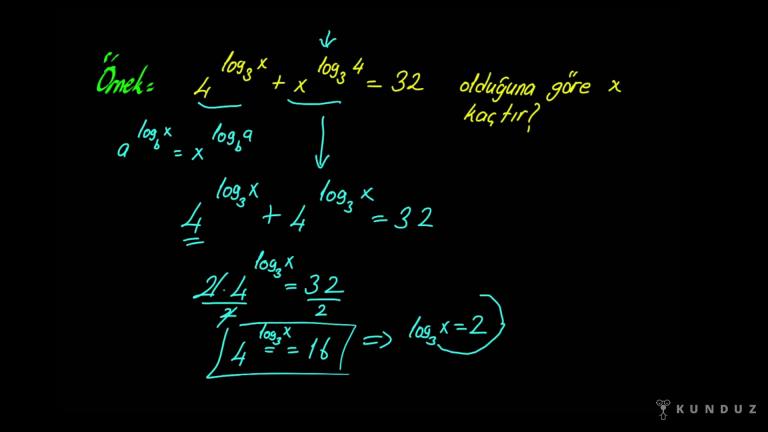 Örnek: 4^{log₃x} + x^{log₃4} = 32 olduğuna göre x
kaçtır?
a^{log_b x} = x^{log_b a}
4^{log₃x} + 4^{log₃x} = 32
2·4^{log₃x}/2 = 32/2
4^{log₃x} = 16 ⇒ log₃x = 2
KUNDUZ